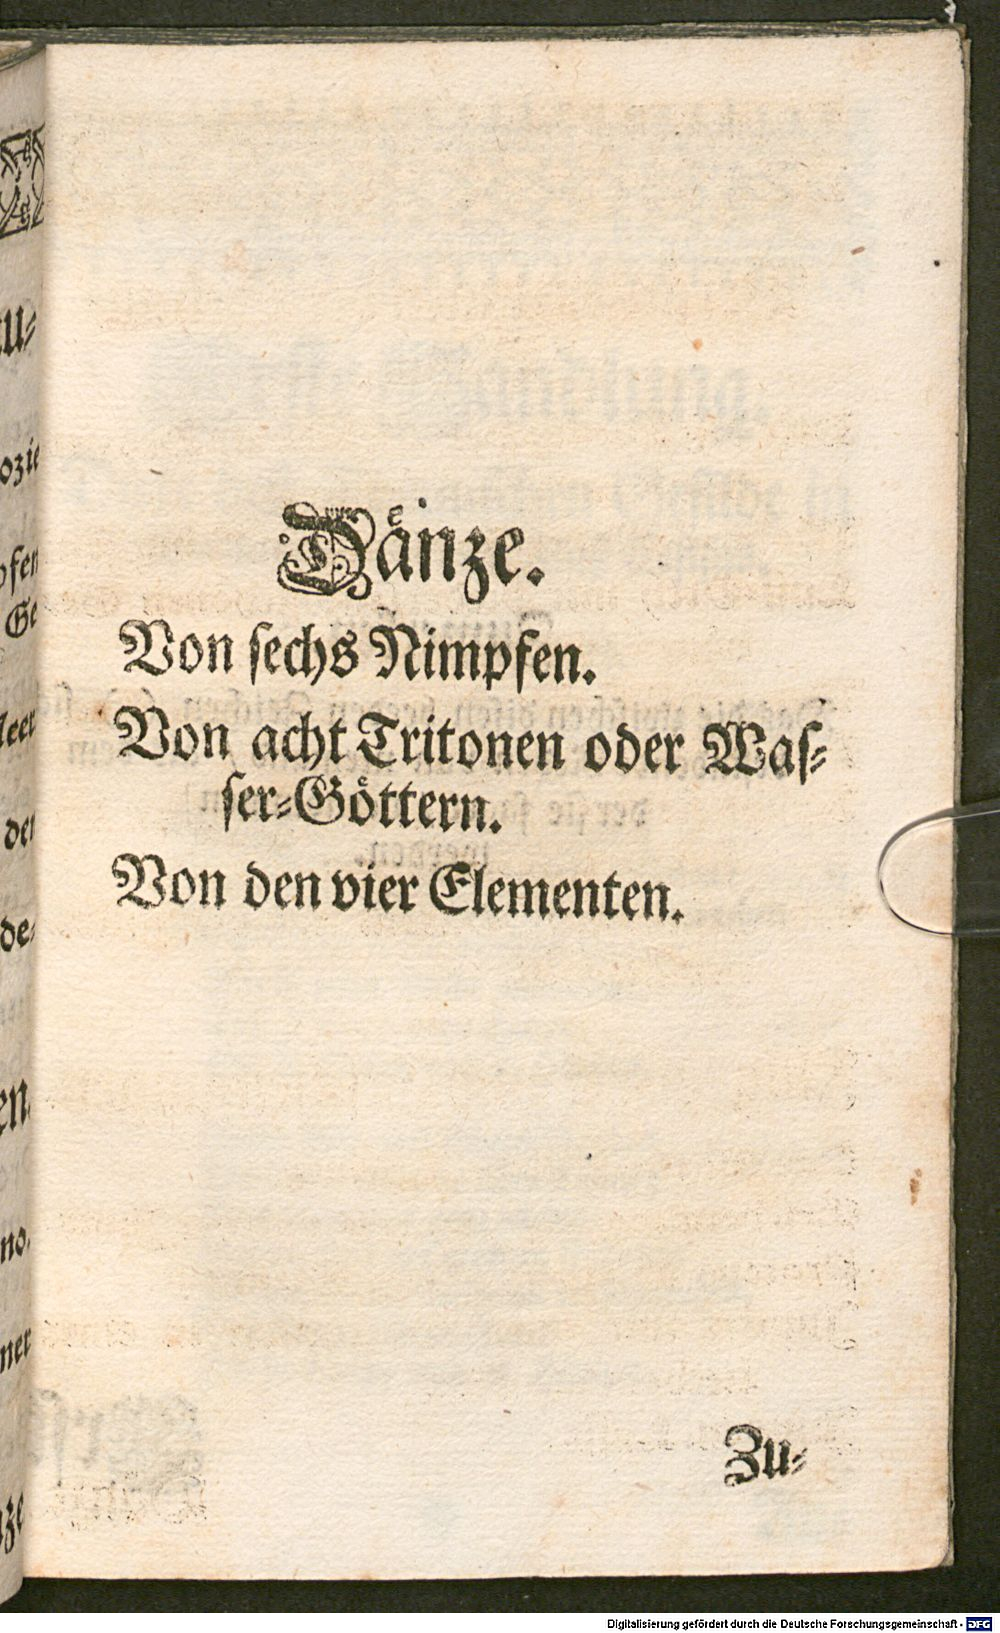 Dåͤnze.
Von ſechs Nimpfen.
Von acht Tritonen oder Waſ⸗
ſer⸗Goͤttern.
Von den vier Elementen.
Zu⸗
Digitalisierung gefördert durch die Deutsche Forschungsgemeinschaft - DFG